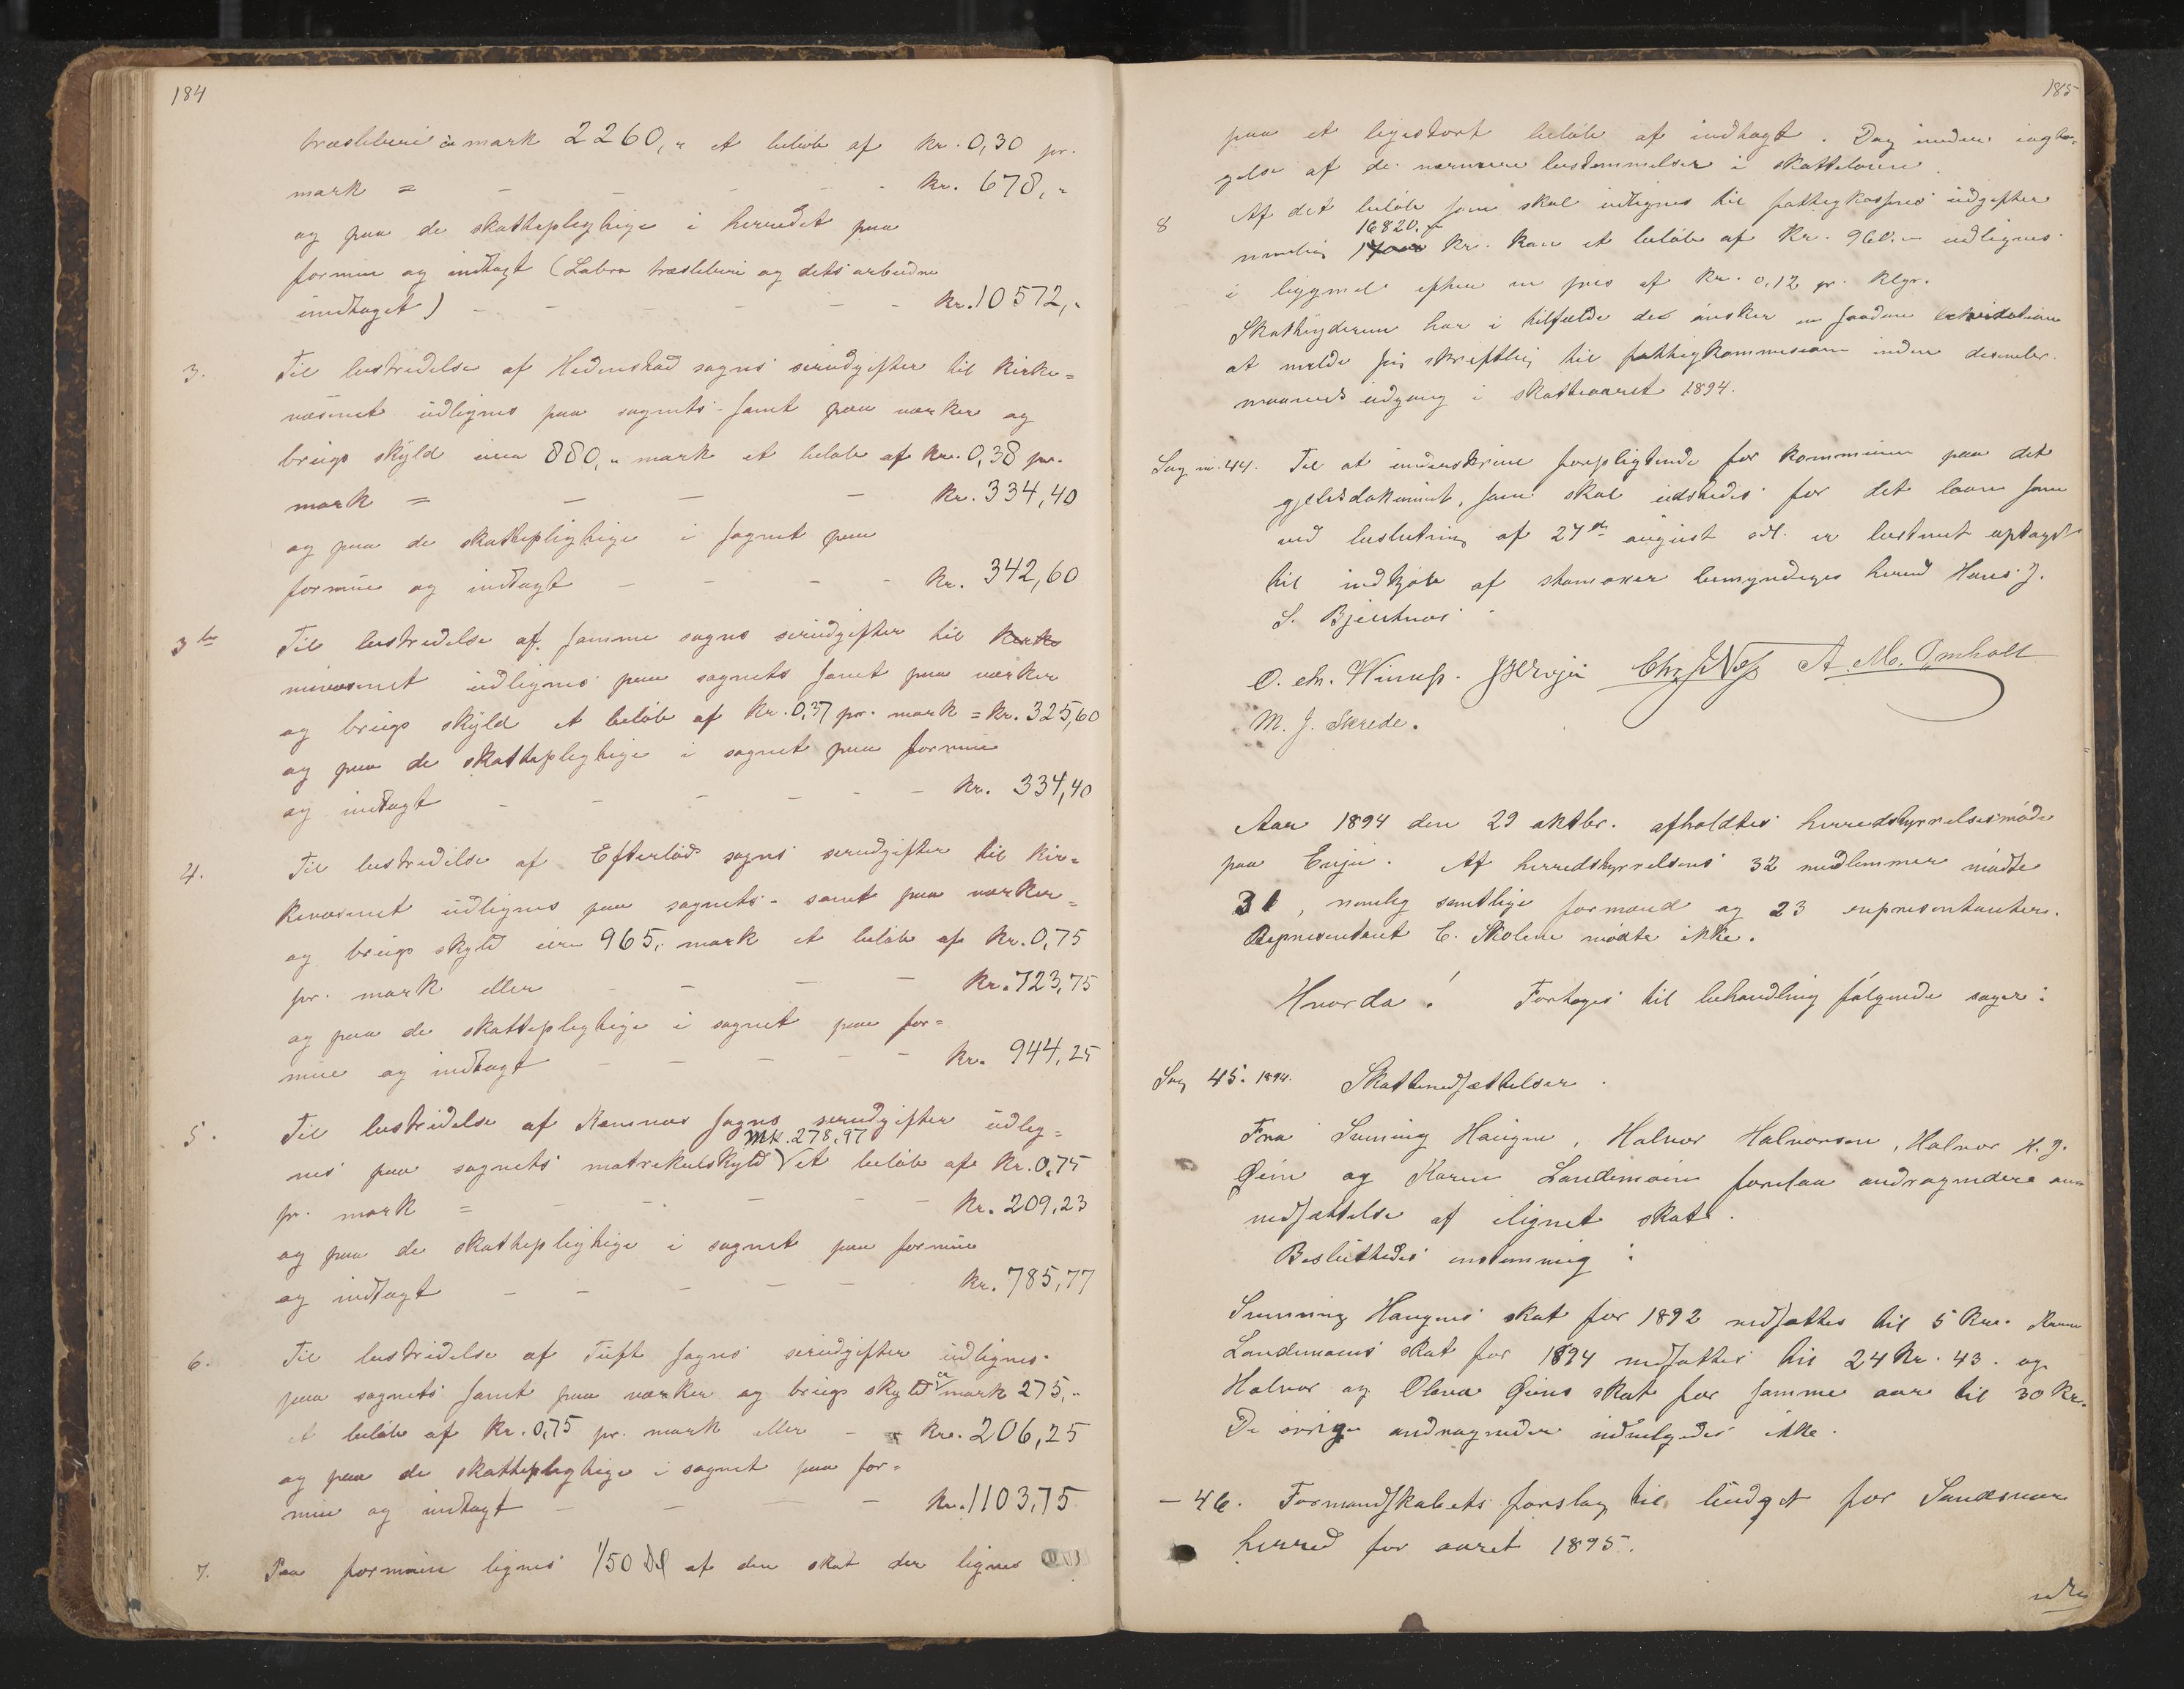 184
træsliberi ca mark 2260,- et beløb af kr. 0,30 pr.
mark = - - - - - kr. 678,-
og paa de skattepligtige i herredet paa
formue og indtægt (Labro træsliberi og dets arbeidere
indtaget) - - - - kr. 10572,-
3. Til bestridelse af Hedenstad sogns særudgifter til kirke=
væsenet udlignes paa sognets- samt paa værker og
brugs skyld 880,- mark et beløb af kr. 0,38 pr.
mark = - - - kr. 334,40
og paa de skattepligtige i sognet paa
formue og indtægt - - - - kr. 342,60
3 b Til bestridelse af samme sogns særudgifter til
udlignes paa sognets samt paa værker
og brugs skyld et beløb af kr. 0,37 pr. mark = kr. 325,60
og paa de skattepligtige i sognet paa formue
og indtægt - - - - - - kr. 334,40
4. Til bestridelse af Efteløds sogns særudgifter til kir=
kevæsenet udlignes paa sognets- samt paa værker=
og brugs skyld 965,- mark et beløb af kr. 0,75
pr. mark eller - - - - kr. 723,75
og paa de skattepligtige i sognet paa for=
mue og indtægt - - - - - kr. 944,25
5. Til bestridelse af Komnæs sogns særudgifter udlig=
mk. 278,97
nes paa sognets matrikulskyld et beløb af kr. 0,75
pr. mark = - - - - kr. 209,23
og paa de skattepligtige i sognet paa formue
og indtægt - - - - - kr. 785,77
6. Til bestridelse af Tuft sogns særudgifter udlignes
paa sognets samt paa værker og brugs skyld ca mark 275,-
et beløb af kr. 0,75 pr. mark eller - kr. 206,25
og paa de skattepligtige i sognet paa for=
mue og indtægt - - - kr. 1103,75
7. Paa formuen lignes 1/50 Del af den skat der lignes
185
paa et ligestort beløb af indtægt. Dog under iagtta-
gelse af de nærmere bestemmelser i skatteloven.
8 Af det beløb som skal udlignes til fattigkassens udgifter
16820.-
nemlig kr. kan et beløb af kr. 960.- udlignes
i bygmel efter en pris af kr. 0,12 pr. klgr.
Skatteyderne har i tilfælde det ønsker en saadan
at melde sig skriftlig til fattigkommissionen inden desember
maaneds udgang i skatteaaret 1894.
Sag nr. 44. Til at underskrive forpligtende for kommunen paa det
gjeldsdokument, som skal udstedes for det laan som
ved beslutning af 27de august d.A. er bestemt optaget
til indkjøb af stamoxer bemyndiges herved Hans J.
S. Bjertnæs
O. Chr. Chr. J. Næss A. M. Omholt
M. J. Skrede.
Aar 1894 den 29 oktbr. afholdtes herredstyrrelsesmøde
paa Evju. Af herredstyrrelsens 32 medlemmer mødte
31, nemlig samtlige formænd og 23 represententer.
Representent C. Skolem mødte ikke.
Hvorda! Fortoges til behandling følgende sager:
Sag 45. 1894. Skattenedsættelser.
Fra Henning Haugen, Halvor Halvorsen, Halvor H. J.
Øien og Karen Landemoien forelaa andragender om
nedsættelse af ilignet skat.
Besluttedes enstemmig:
Henning Haugens skat for 1892 nedsattes til 5 Kr. Karen
Landemoens skat for 1894 nedsattes til 24 Kr. 43. og
Halvor og Olava Øiens skat for samme aar til 30 kr.
De øvrige andragender indvilgedes ikke.
- 46. Formandskabets forslag til budget for Sandsvær
herred for aaret 1895.